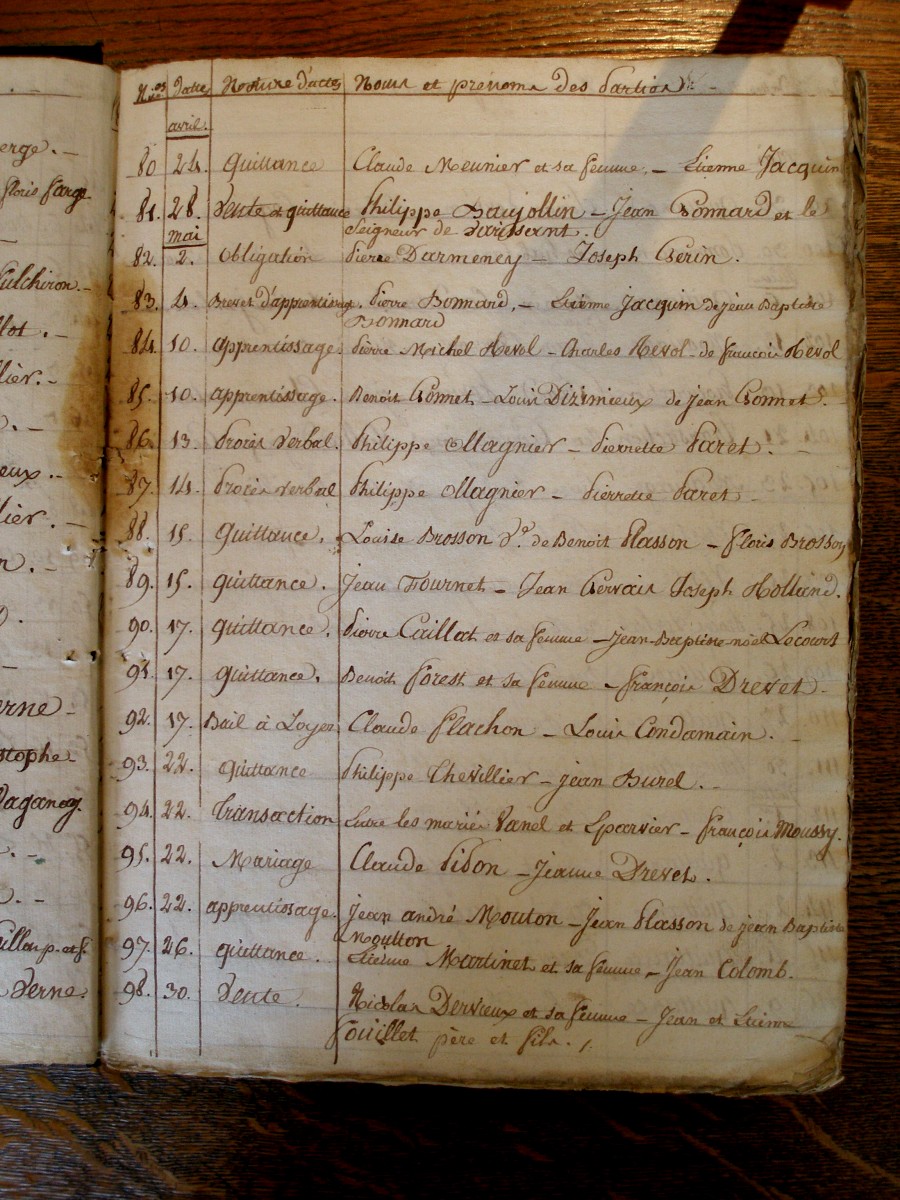 erge. –
floris farge
fulchiron. –
llot. –
lier. –
eux. –
lier. –
n. –
erne –
stophe
Daganay.
illoup. et f.
Verne.
N.os Datte Nature d'actes Noms et prénoms des Parties
avril.
80 24. quittance Claude Meunier et sa femme. – Etienne Jacquin
81. 28. Vente et quittance Philippe Baujollin – Jean Bonnard et le
Seigneur de
mai
82. 2. obligation Pierre Darmeney – Joseph Gérin.
83. 4. Brevet d'apprentissage. Pierre Bonnard, – Etienne Jacquin de jean Baptiste
Bonnard
84. 10. apprentissage. Pierre Michel Revol – Charles Revol – de françois Revol
85. 10. apprentissage. Benoit Gonnet – Louis Dizimieux de jean Gonnet.
86. 13. Procès verbal. Philippe Magnier – Pierrette Paret. –
87. 14. Procès verbal Philippe Magnier – Pierrette Paret –
88. 15. quittance. Louise Brosson v.e de Benoit Plasson – floris Brosson
89. 15. quittance. Jean Fournet – Jean Gervais Joseph Rolland.
90. 17. quittance. Pierre Caillat et sa femme – jean-Baptiste noël Lecourt
91. 17. quittance. Benoit forest et sa femme – françois Drevet –
92. 17. Bail à Loyer Claude flachon – Louis Condamain. –
93. 22. quittance Philippe Chevillier – jean Burel. –
94. 22. Transaction Entre les mariés Vanel et Eparvier – françois Moussy.
95. 22. Mariage Claude Pidon – Jeanne Drevet.
96. 22. apprentissage. Jean andré Mouton – Jean Plasson de jean Baptiste
Moutton
97. 26. quittance. Etienne Martinet et sa femme – Jean Colomb.
98. 30. Vente. Nicolas Dervieux et sa femme – Jean et Etienne
fouillet père et fils. /.